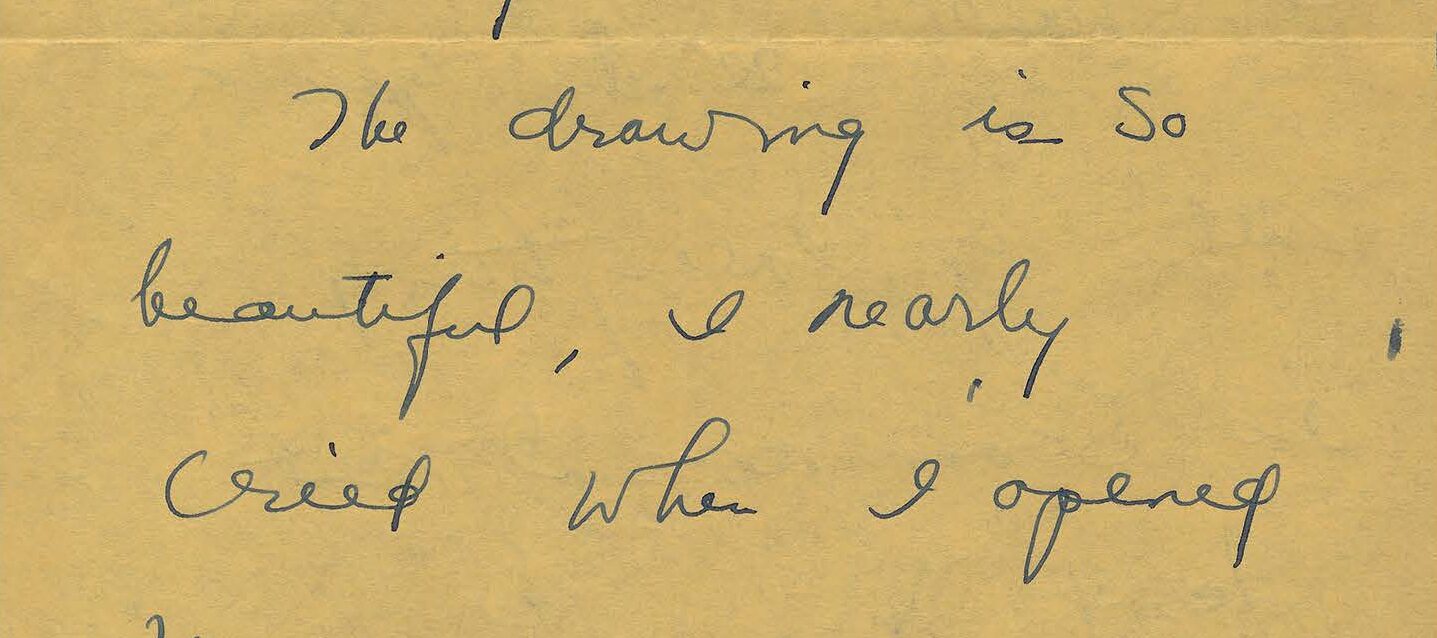 The drawing is So
beautiful, I nearly
Cried when I opened